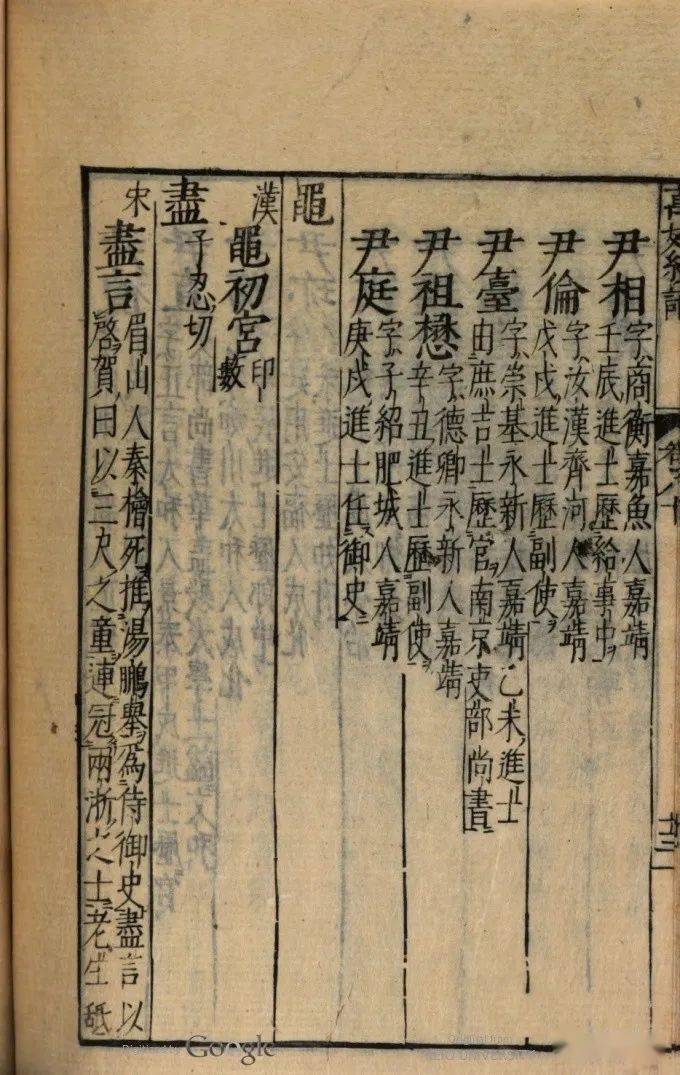 尹相
字商衡嘉魚人嘉靖
壬辰進士歷給事中
尹倫
字汝漢齊河人嘉靖
戊戌進士歷副使
尹臺
字崇基永新人嘉靖乙未進士
由庶吉士歷官南京吏部尚書
尹祖懋
字德卿永新人嘉靖
辛丑進士歷副使
尹庭
字子紹肥城人嘉靖
庚戌進士任御史
黽
漢
黽初宮
印
數
盡
子忍切
宋
盡言
眉山人秦檜死推湯鵬舉為侍御史盡言以
啓賀曰以三尺之童連冠兩浙之士老生舐
Google